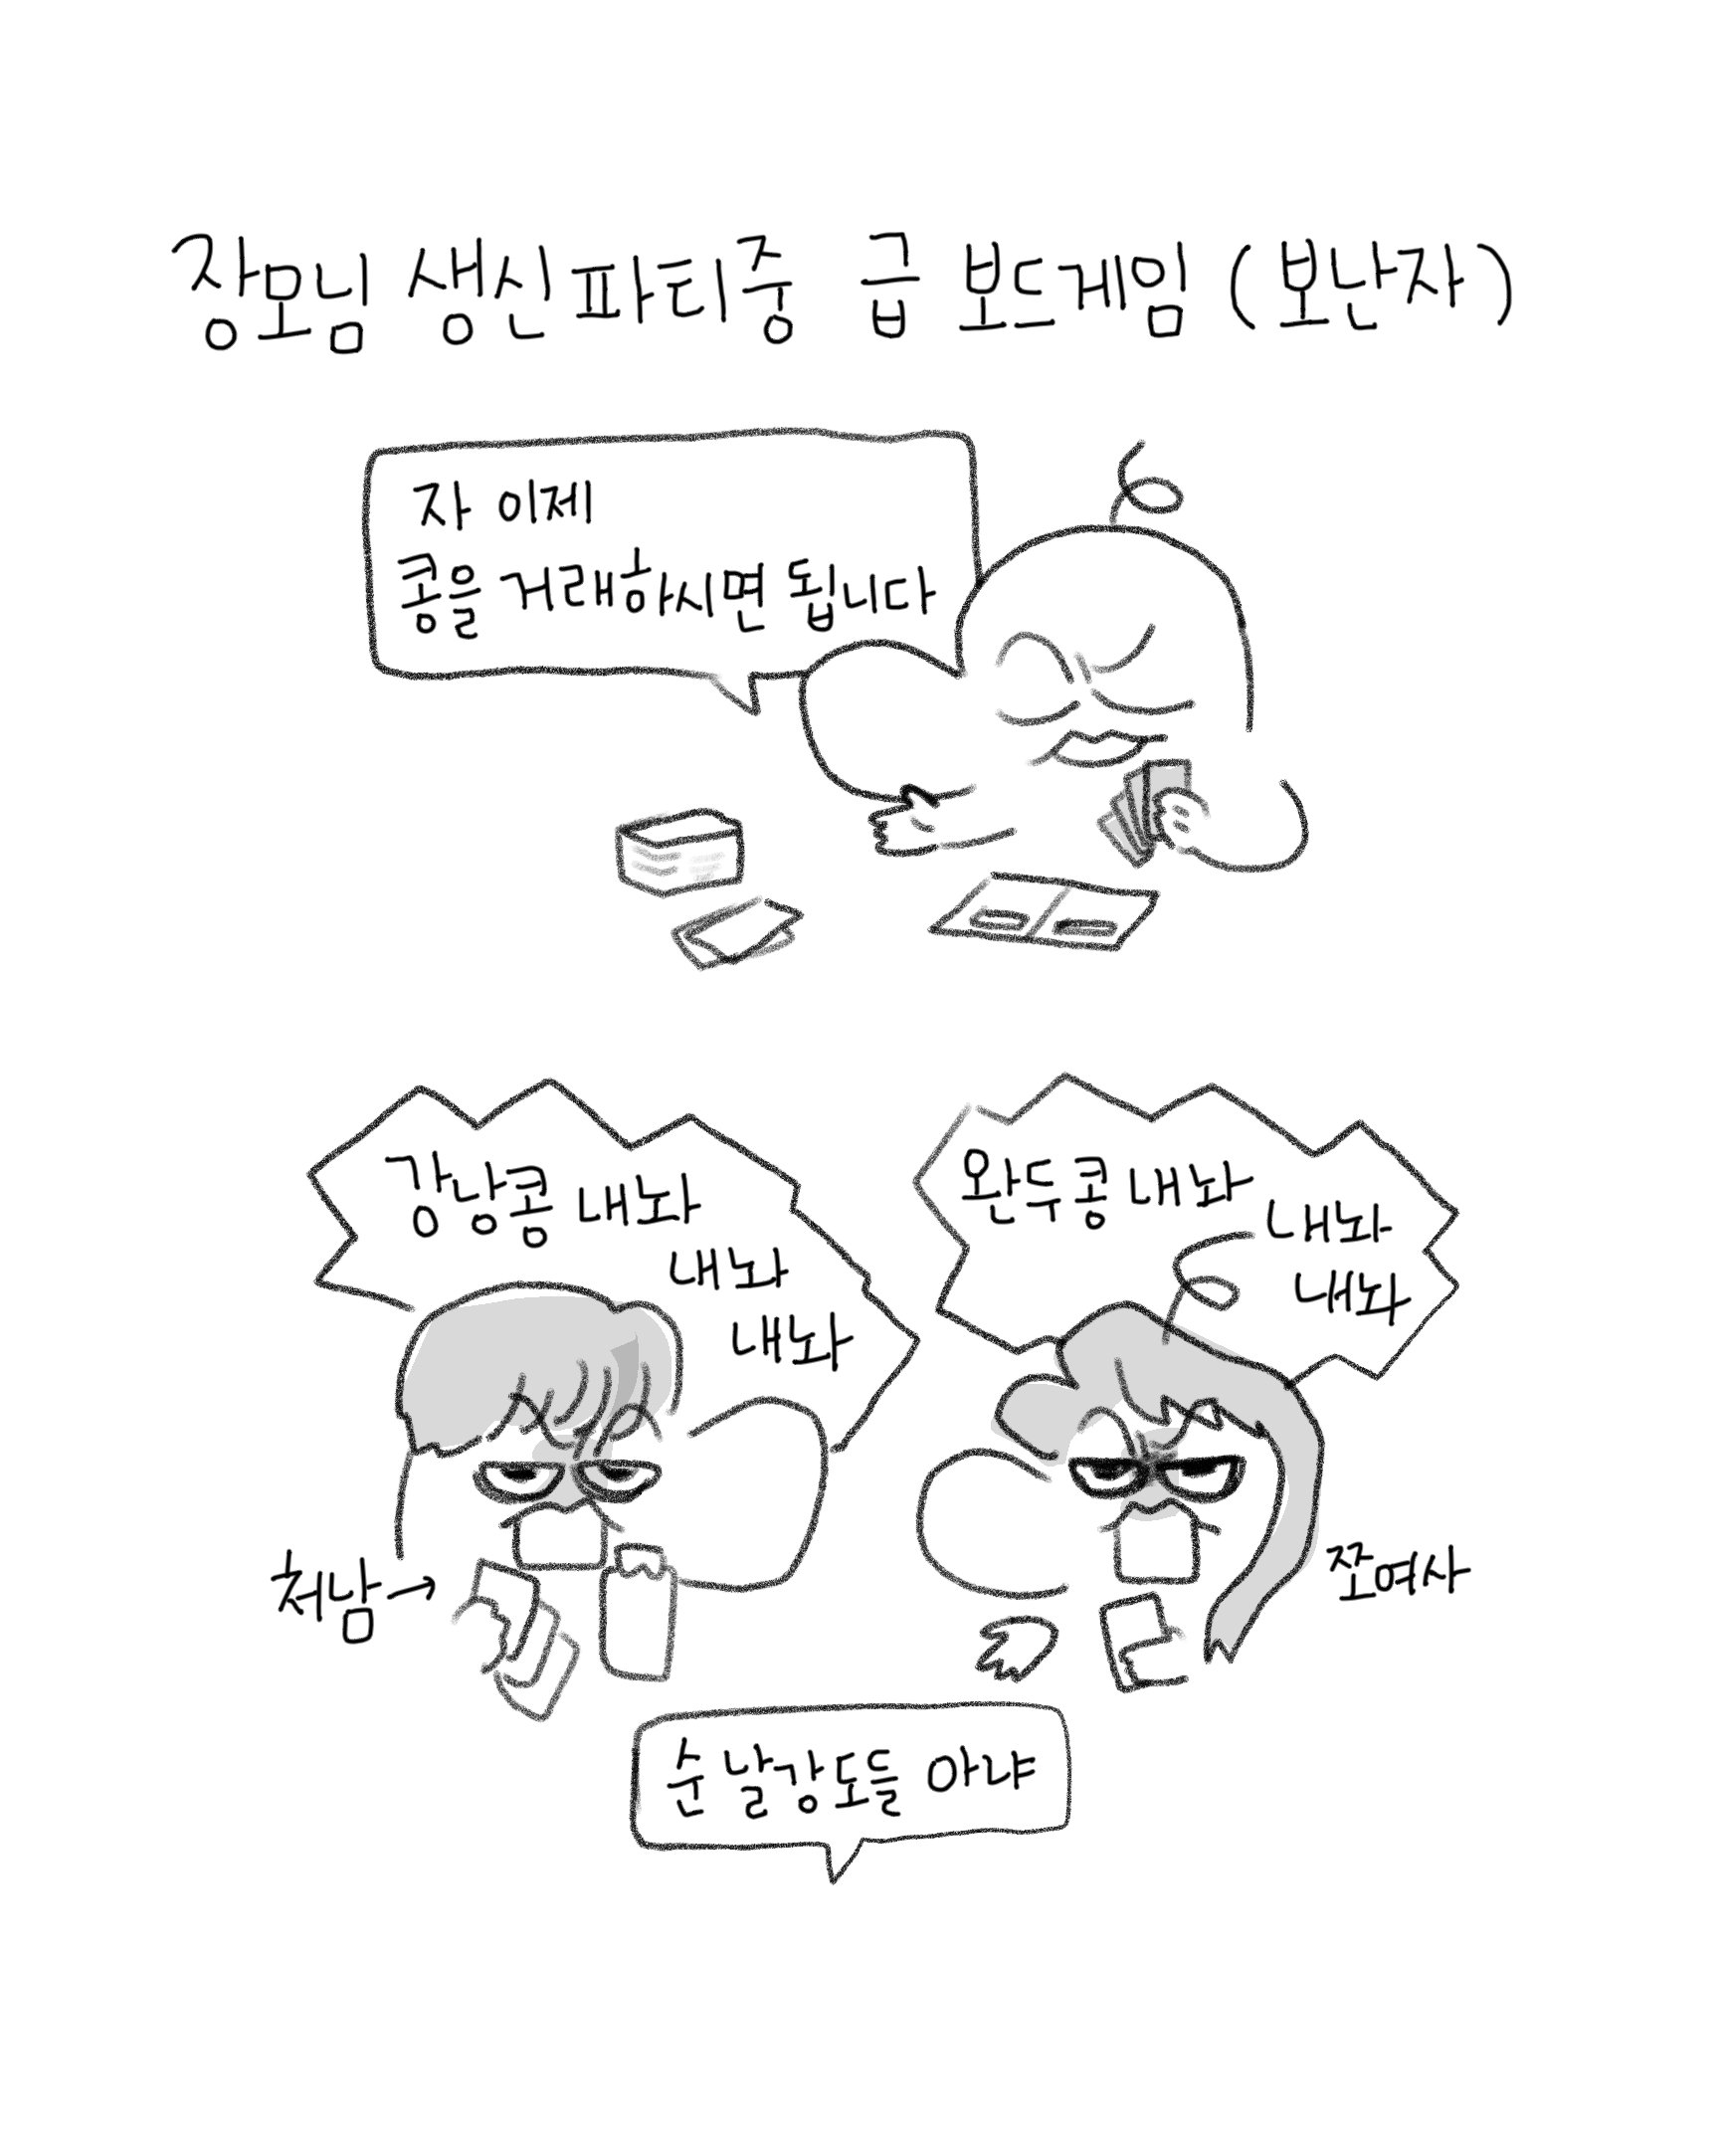 장모님 생신파티중 급 보드게임 (보난자)
자 이제
콩을 거래하시면 됩니다
강낭콩 내놔
내놔
내놔
완두콩 내놔
내놔
내놔
처남→
쪼여사
순 날강도들 아냐